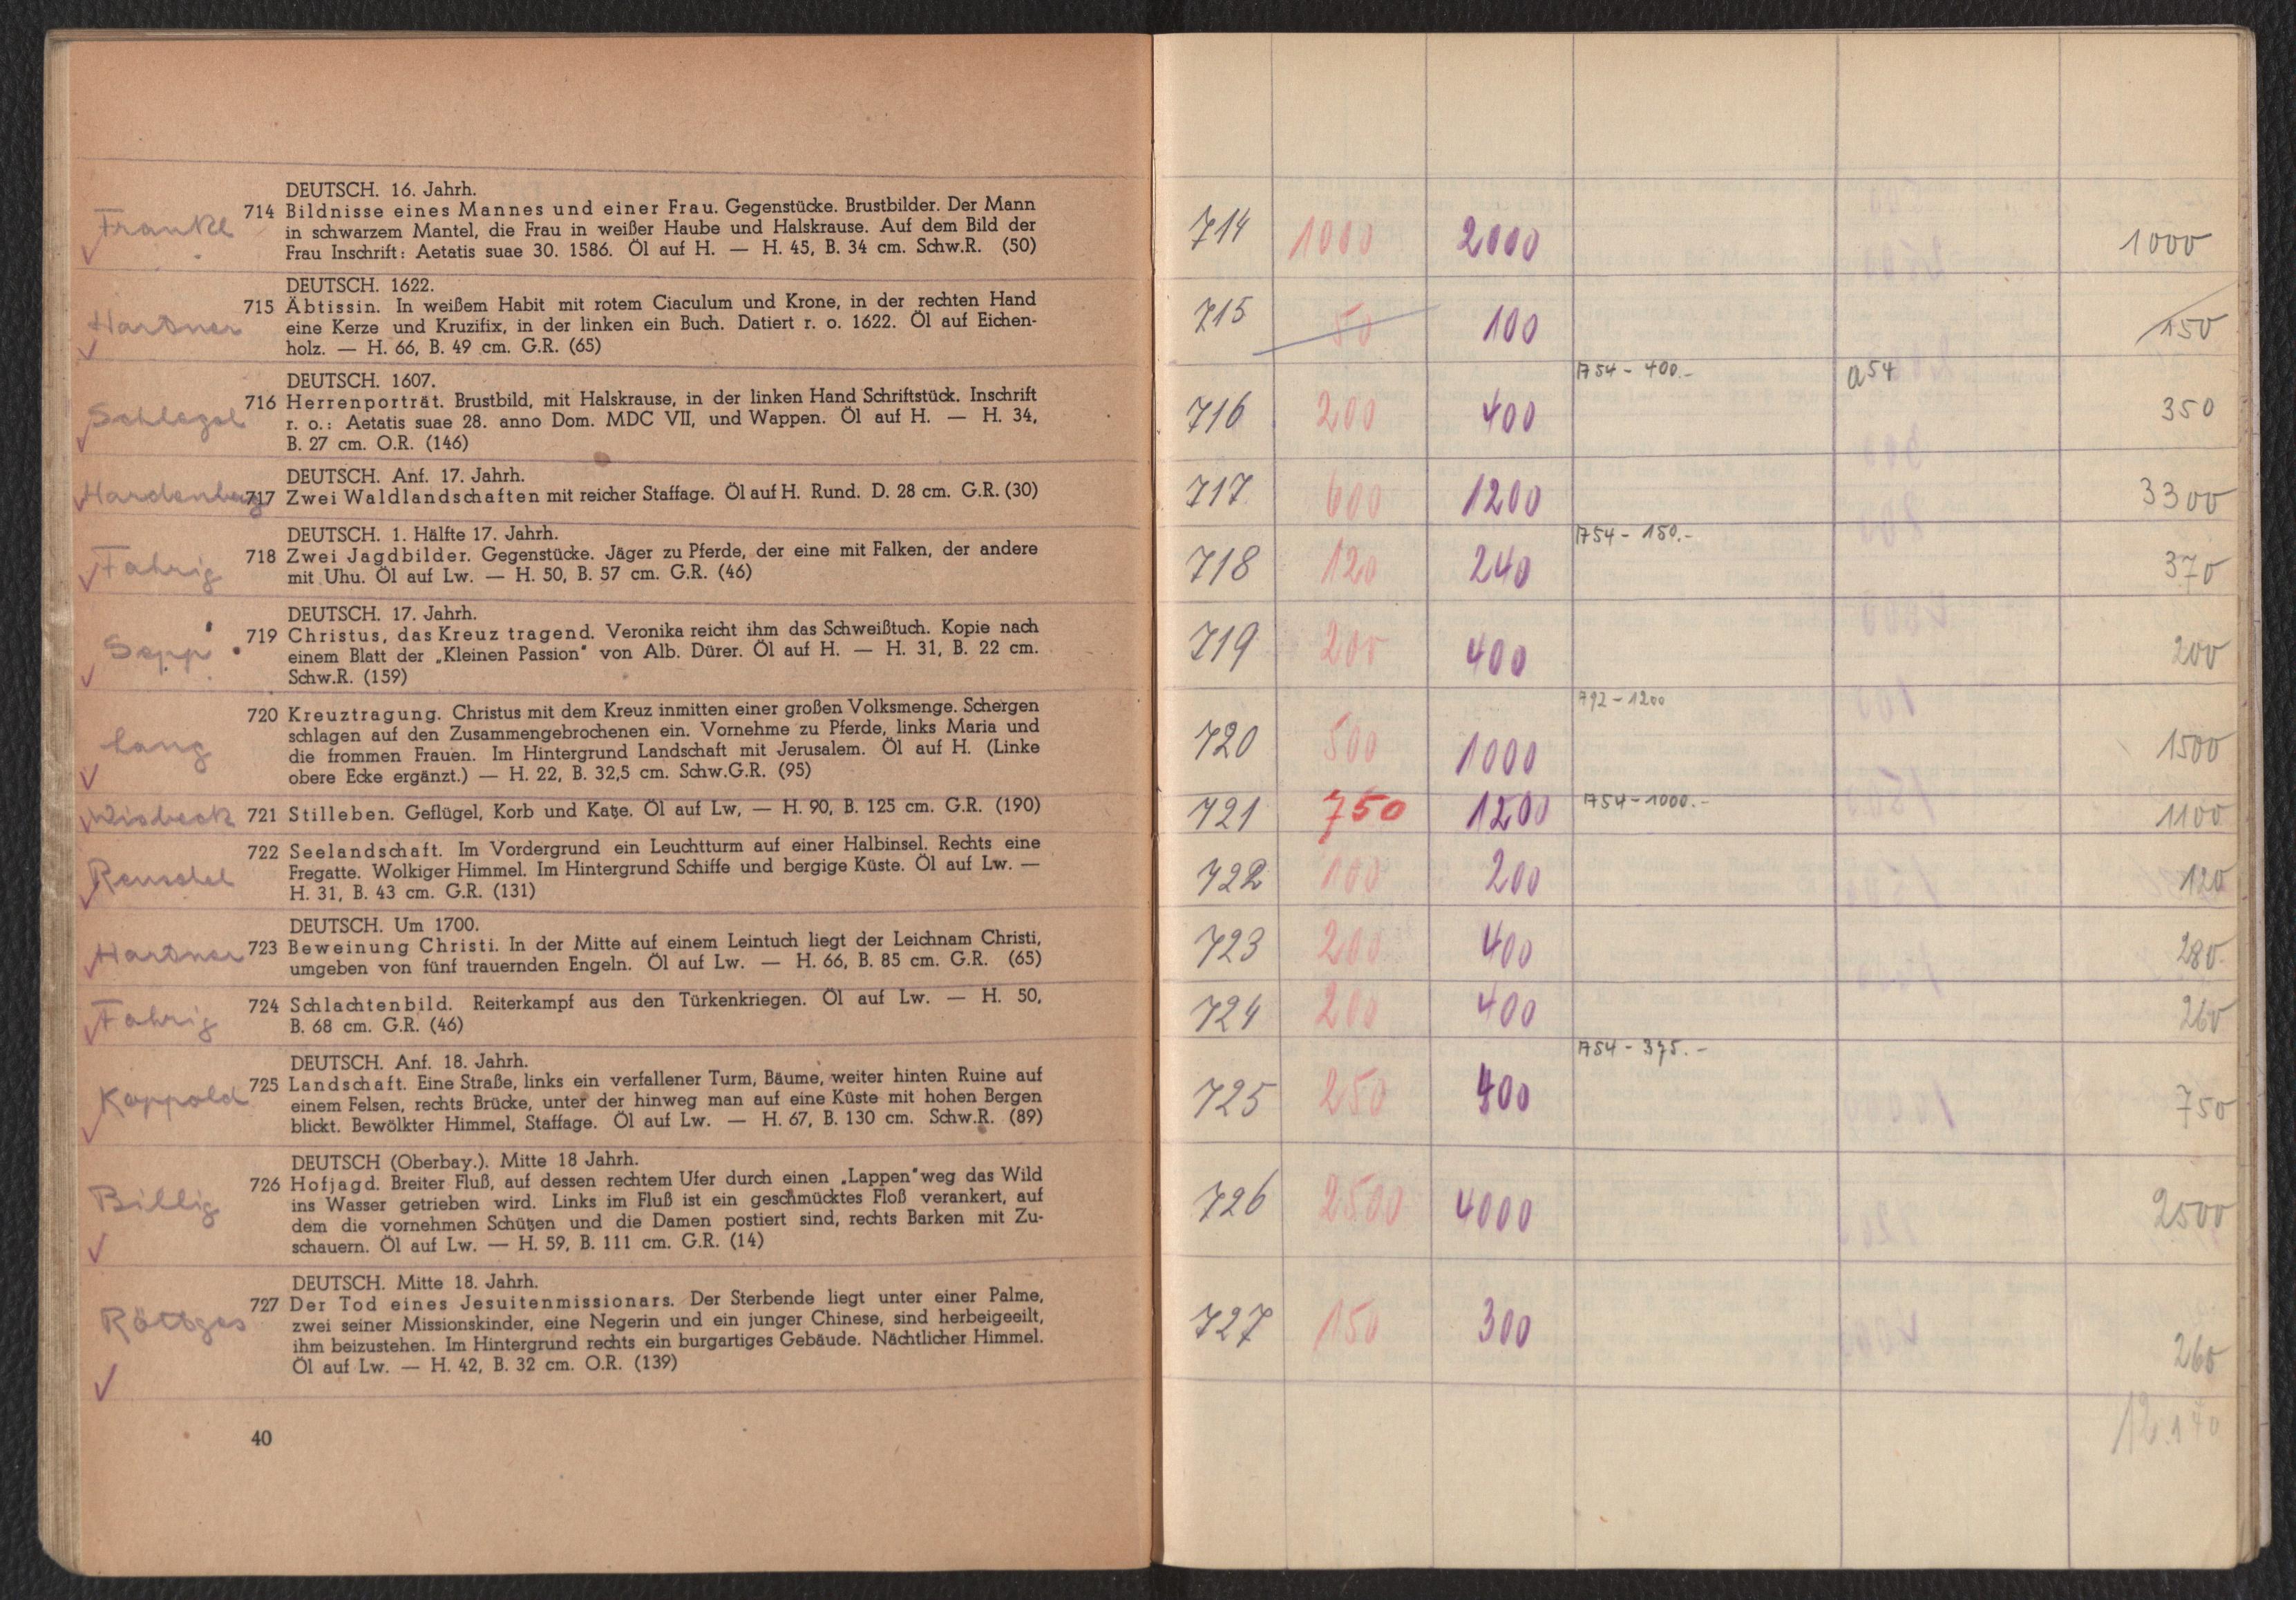 DEUTSCH. 16. Jahrh.
Franke 714 Bildnisse eines Mannes und einer Frau. Gegenstücke. Brustbilder. Der Mann
in schwarzem Mantel, die Frau in weißer Haube und Halskrause. Auf dem Bild der
Frau Inschrift: Aetatis suae 30. 1586. Öl auf H. — H. 45, B. 34 cm. Schw.R. (50)
DEUTSCH. 1622.
Hartner 715 Äbtissin. In weißem Habit mit rotem Ciaculum und Krone, in der rechten Hand
eine Kerze und Kruzifix, in der linken ein Buch. Datiert r. o. 1622. Öl auf Eichen-
holz. — H. 66, B. 49 cm. G.R. (65)
DEUTSCH. 1607.
Schlegel 716 Herrenporträt. Brustbild, mit Halskrause, in der linken Hand Schriftstück. Inschrift
r. o.: Aetatis suae 28. anno Dom. MDC VII, und Wappen. Öl auf H. — H. 34,
B. 27 cm. O.R. (146)
DEUTSCH. Anf. 17. Jahrh.
Hardenberg 717 Zwei Waldlandschaften mit reicher Staffage. Öl auf H. Rund. D. 28 cm. G.R. (30)
DEUTSCH. 1. Hälfte 17. Jahrh.
Fahrig 718 Zwei Jagdbilder. Gegenstücke. Jäger zu Pferde, der eine mit Falken, der andere
mit Uhu. Öl auf Lw. — H. 50, B. 57 cm. G.R. (46)
DEUTSCH. 17. Jahrh.
Sepp 719 Christus, das Kreuz tragend. Veronika reicht ihm das Schweißtuch. Kopie nach
einem Blatt der „Kleinen Passion" von Alb. Dürer. Öl auf H. — H. 31, B. 22 cm.
Schw.R. (159)
Lang 720 Kreuztragung. Christus mit dem Kreuz inmitten einer großen Volksmenge. Schergen
schlagen auf den Zusammengebrochenen ein. Vornehme zu Pferde, links Maria und
die frommen Frauen. Im Hintergrund Landschaft mit Jerusalem. Öl auf H. (Linke
obere Ecke ergänzt.) — H. 22, B. 32,5 cm. Schw.G.R. (95)
Wisbeck 721 Stilleben. Geflügel, Korb und Katze. Öl auf Lw, — H. 90, B. 125 cm. G.R. (190)
Reuschel 722 Seelandschaft. Im Vordergrund ein Leuchtturm auf einer Halbinsel. Rechts eine
Fregatte. Wolkiger Himmel. Im Hintergrund Schiffe und bergige Küste. Öl auf Lw. —
H. 31, B. 43 cm. G.R. (131)
DEUTSCH. Um 1700.
Hartner 723 Beweinung Christi. In der Mitte auf einem Leintuch liegt der Leichnam Christi,
umgeben von fünf trauernden Engeln. Öl auf Lw. — H. 66, B. 85 cm. G.R. (65)
Fahrig 724 Schlachtenbild. Reiterkampf aus den Türkenkriegen. Öl auf Lw. — H. 50,
B. 68 cm. G.R. (46)
DEUTSCH. Anf. 18. Jahrh.
Koppold 725 Landschaft. Eine Straße, links ein verfallener Turm, Bäume, weiter hinten Ruine auf
einem Felsen, rechts Brücke, unter der hinweg man auf eine Küste mit hohen Bergen
blickt. Bewölkter Himmel, Staffage. Öl auf Lw. — H. 67, B. 130 cm. Schw.R. (89)
DEUTSCH (Oberbay.). Mitte 18 Jahrh.
Billig 726 Hofjagd. Breiter Fluß, auf dessen rechtem Ufer durch einen „Lappen"weg das Wild
ins Wasser getrieben wird. Links im Fluß ist ein geschmücktes Floß verankert, auf
dem die vornehmen Schützen und die Damen postiert sind, rechts Barken mit Zu-
schauern. Öl auf Lw. — H. 59, B. 111 cm. G.R. (14)
DEUTSCH. Mitte 18. Jahrh.
Röttges 727 Der Tod eines Jesuitenmissionars. Der Sterbende liegt unter einer Palme,
zwei seiner Missionskinder, eine Negerin und ein junger Chinese, sind herbeigeeilt,
ihm beizustehen. Im Hintergrund rechts ein burgartiges Gebäude. Nächtlicher Himmel.
Öl auf Lw. — H. 42, B. 32 cm. O.R. (139)
40
714 1000 2000 1000
715 50 100 150
A54 - 400.- a54
716 200 400 350
717 600 1200 3300
A54 - 150.-
718 120 240 370
719 200 400 200
792 - 1200
720 500 1000 1500
721 750 1200 A54 - 1000.- 1100
722 100 200 120
723 200 400 280
724 200 400 260
A54 - 375.-
725 250 400 750
726 2500 4000 2500
727 150 300 260
12.140